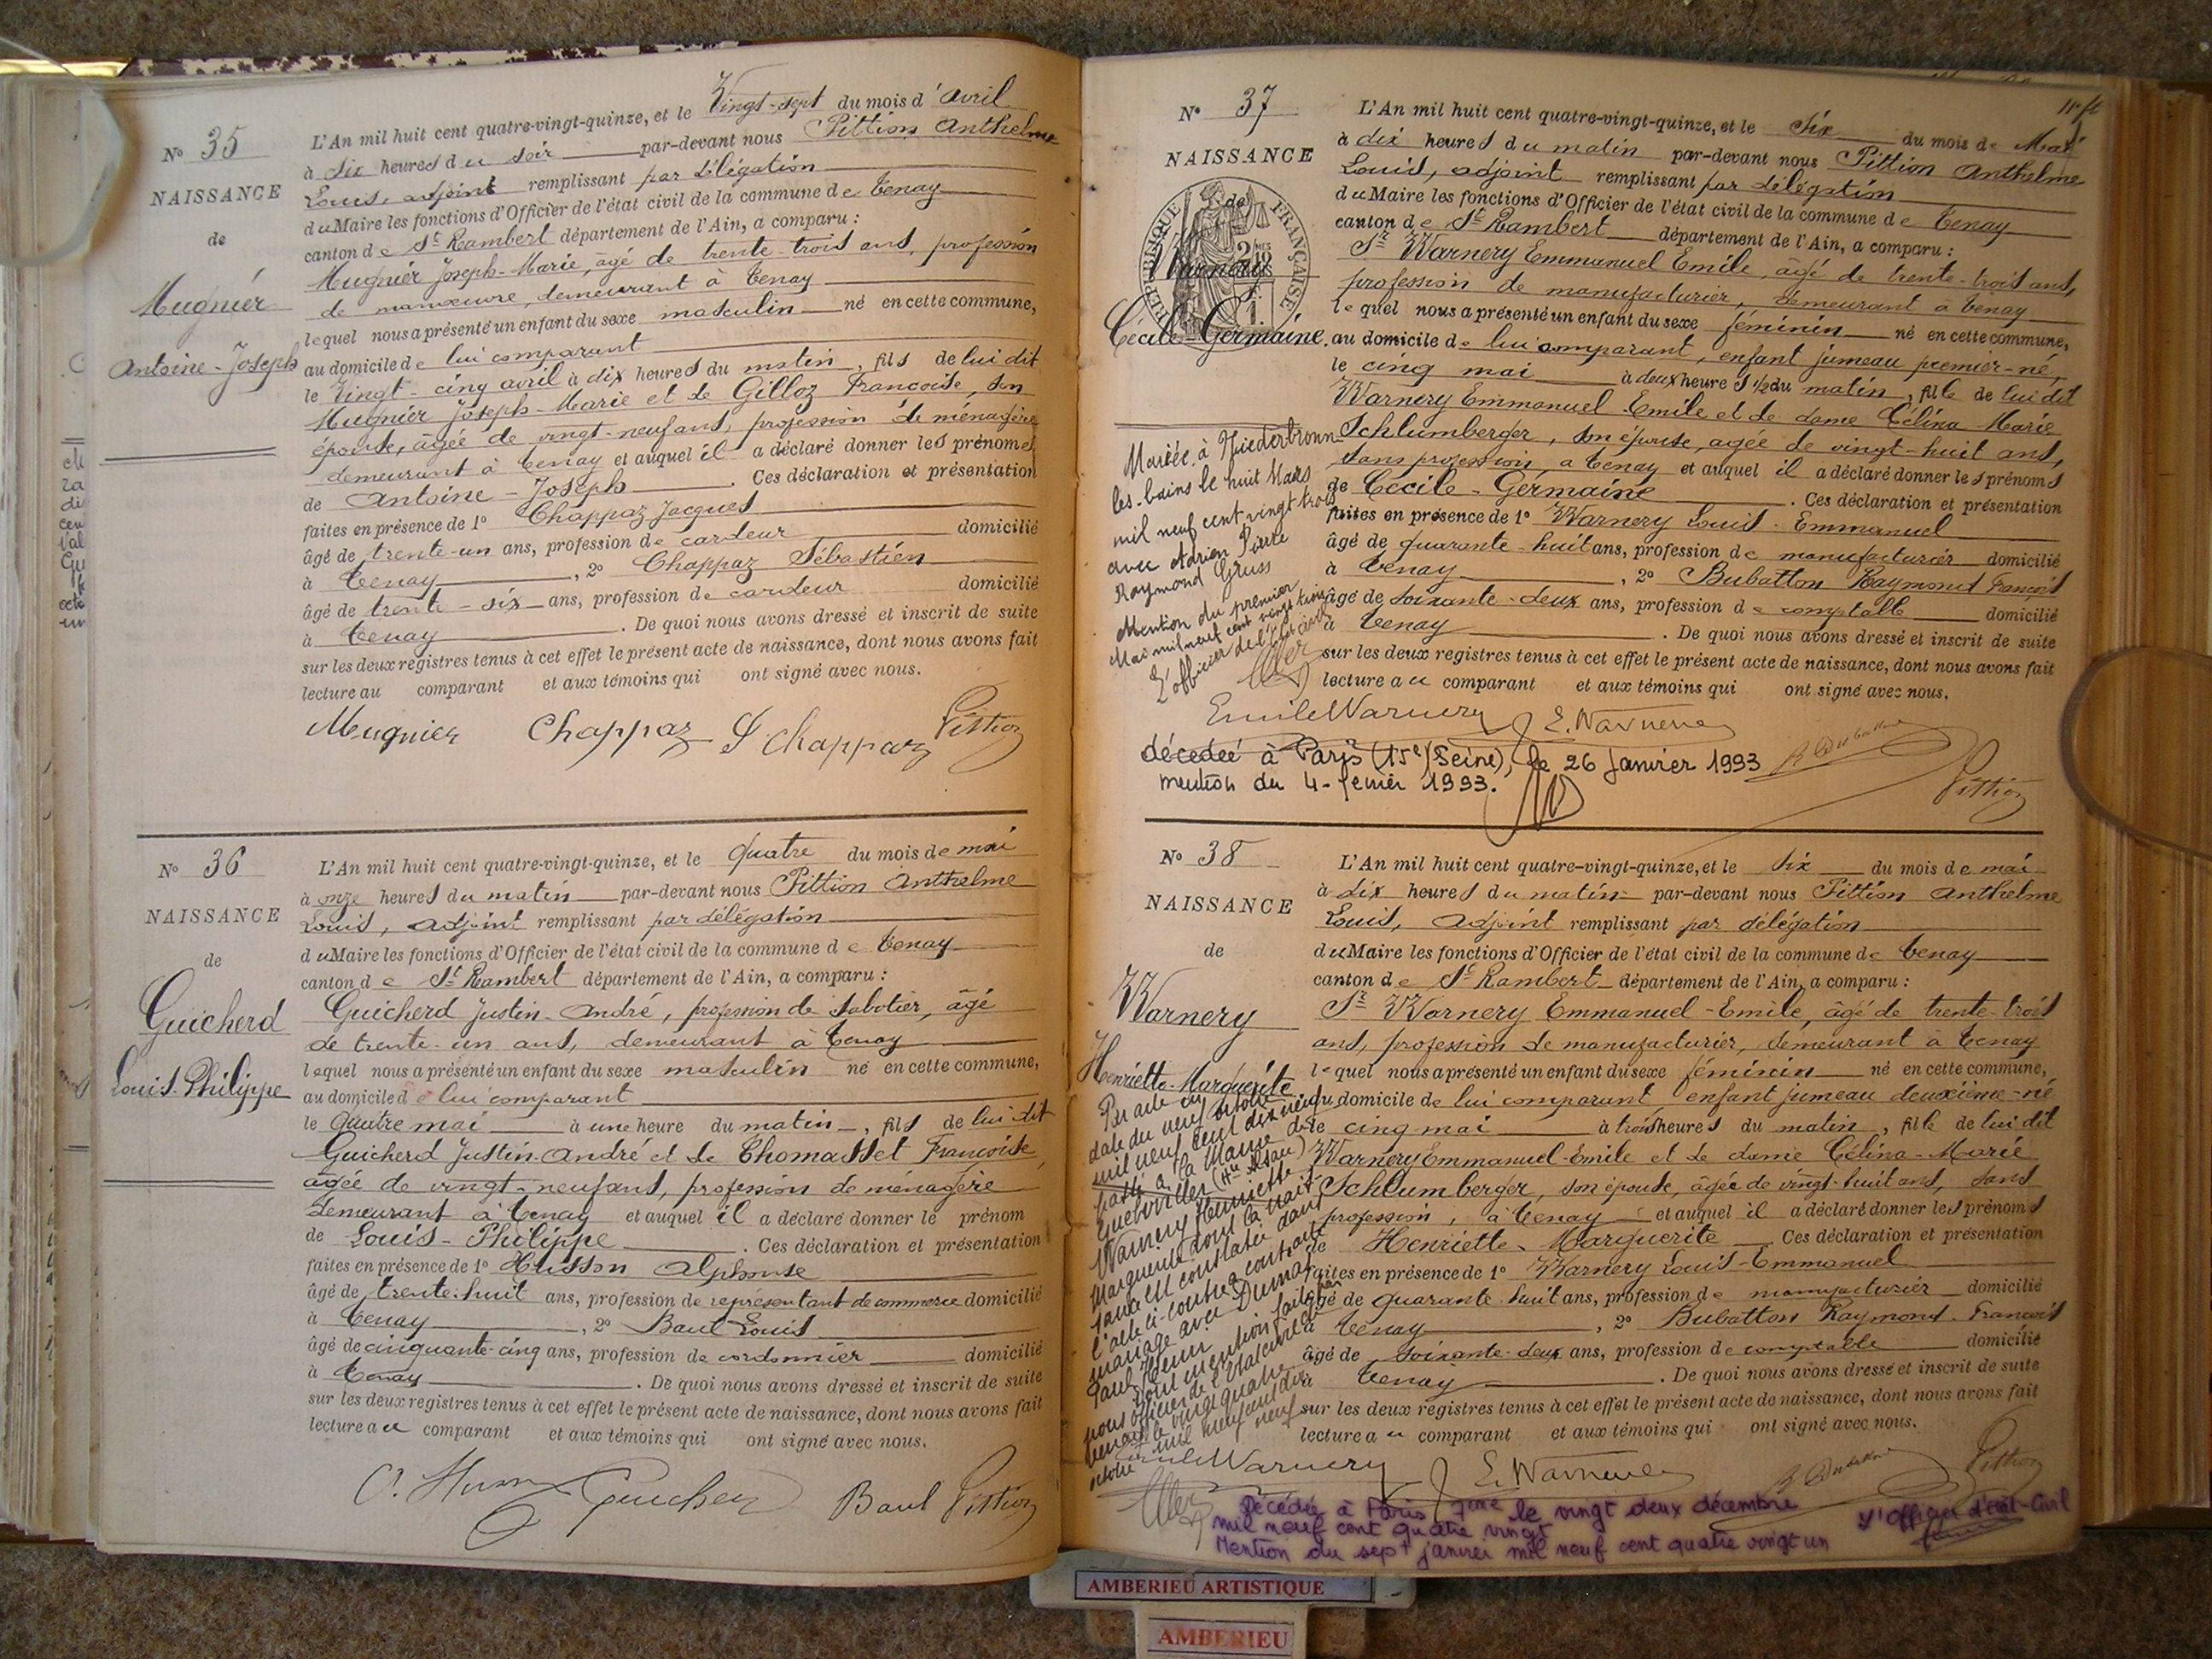 N° 35
NAISSANCE
de
Mugnier
Antoine-Joseph
L'An mil huit cent quatre-vingt-quinze, et le Vingt-sept du mois d'avril
à six heures du soir par-devant nous Pittion Anthelme
Louis, adjoint remplissant par délégation
du Maire les fonctions d'Officier de l'état civil de la commune de Tenay
canton de St Rambert département de l'Ain, a comparu :
Mugnier Joseph-Marie, âgé de trente-trois ans, profession
de manœuvre, demeurant à Tenay
lequel nous a présenté un enfant du sexe masculin né en cette commune,
au domicile de lui comparant
le Vingt-cinq avril à dix heures du matin, fils de lui dit
Mugnier Joseph-Marie et de Gilloz Françoise, son
épouse, âgée de vingt-neuf ans, profession de ménagère
demeurant à Tenay et auquel il a déclaré donner les prénoms
de Antoine-Joseph. Ces déclaration et présentation
faites en présence de 1° Chappaz Jacques
âgé de trente-un ans, profession de cardeur domicilié
à Tenay, 2° Chappaz Sébastien
âgé de trente-six ans, profession de cardeur domicilié
à Tenay. De quoi nous avons dressé et inscrit de suite
sur les deux registres tenus à cet effet le présent acte de naissance, dont nous avons fait
lecture au comparant et aux témoins qui ont signé avec nous.
Mugnier Chappaz S Chappaz Pittion
N° 36
NAISSANCE
de
Guicherd
Louis-Philippe
L'An mil huit cent quatre-vingt-quinze, et le quatre du mois de mai
à onze heures du matin par-devant nous Pittion Anthelme
Louis, adjoint remplissant par délégation
du Maire les fonctions d'Officier de l'état civil de la commune de Tenay
canton de St Rambert département de l'Ain, a comparu :
Guicherd Justin-André, profession de sabotier, âgé
de trente-un ans, demeurant à Tenay
lequel nous a présenté un enfant du sexe masculin né en cette commune,
au domicile de lui comparant
le quatre mai à une heure du matin, fils de lui dit
Guicherd Justin-André et de Thomasset Françoise
âgée de vingt-neuf ans, profession de ménagère
demeurant à Tenay et auquel il a déclaré donner le prénom
de Louis-Philippe. Ces déclaration et présentation
faites en présence de 1° Husson Alphonse
âgé de trente-huit ans, profession de représentant de commerce domicilié
à Tenay, 2° Baul Louis
âgé de cinquante-cinq ans, profession de cordonnier domicilié
à Tenay. De quoi nous avons dressé et inscrit de suite
sur les deux registres tenus à cet effet le présent acte de naissance, dont nous avons fait
lecture au comparant et aux témoins qui ont signé avec nous.
Guicherd Baul Pittion
N° 37
NAISSANCE
de
RÉPUBLIQUE FRANÇAISE
Warnery
Cécile-Germaine.
L'An mil huit cent quatre-vingt-quinze, et le six du mois de Mai
à dix heures du matin par-devant nous Pittion Anthelme
Louis, adjoint remplissant par délégation
du Maire les fonctions d'Officier de l'état civil de la commune de Tenay
canton de St Rambert département de l'Ain, a comparu :
Sr Warnery Emmanuel Emile, âgé de trente-trois ans,
profession de manufacturier, demeurant à Tenay
lequel nous a présenté un enfant du sexe féminin né en cette commune,
au domicile de lui comparant, enfant jumeau premier-né,
le cinq mai à deux heures ½ du matin, fille de lui dit
Warnery Emmanuel-Emile et de dame Célina Marie
Schlumberger, son épouse, âgée de vingt-huit ans,
sans profession, à Tenay et auquel il a déclaré donner les prénoms
de Cécile-Germaine. Ces déclaration et présentation
faites en présence de 1° Warnery Louis-Emmanuel
âgé de quarante-huit ans, profession de manufacturier domicilié
à Tenay, 2° Dubatton Raymond François
âgé de soixante-deux ans, profession de comptable domicilié
à Tenay. De quoi nous avons dressé et inscrit de suite
sur les deux registres tenus à cet effet le présent acte de naissance, dont nous avons fait
lecture au comparant et aux témoins qui ont signé avec nous.
Mariée à Niederbronn
les-bains le huit Mars
mil neuf cent vingt trois
avec Adrien Pierre
Raymond Gruss
Mention du premier
Mai mil neuf cent vingt trois
L'officier de l'Etat civil
Emile Warnery E. Warnery R Dubatton Pittion
décédée à Paris (15e) (Seine), le 26 Janvier 1993
mention du 4-fevrier 1993.
N° 38
NAISSANCE
de
Warnery
Henriette-Marguerite
L'An mil huit cent quatre-vingt-quinze, et le six du mois de mai
à dix heures du matin par-devant nous Pittion Anthelme
Louis, adjoint remplissant par délégation
du Maire les fonctions d'Officier de l'état civil de la commune de Tenay
canton de St Rambert département de l'Ain, a comparu :
Sr Warnery Emmanuel-Emile, âgé de trente-trois
ans, profession de manufacturier, demeurant à Tenay
lequel nous a présenté un enfant du sexe féminin né en cette commune,
au domicile de lui comparant, enfant jumeau deuxième-né
le cinq mai à trois heures du matin, fille de lui dit
Warnery Emmanuel-Emile et de dame Célina-Marie
Schlumberger, son épouse, âgée de vingt-huit ans, sans
profession, à Tenay et auquel il a déclaré donner les prénoms
de Henriette-Marguerite. Ces déclaration et présentation
faites en présence de 1° Warnery Louis-Emmanuel
âgé de quarante-huit ans, profession de manufacturier domicilié
à Tenay, 2° Dubatton Raymond-François
âgé de soixante-deux ans, profession de comptable domicilié
à Tenay. De quoi nous avons dressé et inscrit de suite
sur les deux registres tenus à cet effet le présent acte de naissance, dont nous avons fait
lecture au comparant et aux témoins qui ont signé avec nous.
Par acte en
date du neuf octobre
mil neuf cent dix neuf
passé à la Mairie de
Guebwiller (Hte Alsace)
Warnery Henriette
Marguerite dont la nais-
sance est constatée dans
l'acte ci-contre a contracté
mariage avec
Paul Henri
Dont mention faite par
nous officier de l'Etat civil de
Tenay le vingt quatre
octobre mil neuf cent dix
neuf
Emile Warnery E. Warnery R Dubatton Pittion
Décédée à Paris 7eme le vingt deux décembre
mil neuf cent quatre vingt
Mention du sept janvier mil neuf cent quatre vingt un
L'Officier d'Etat-Civil
AMBERIEU ARTISTIQUE
AMBERIEU